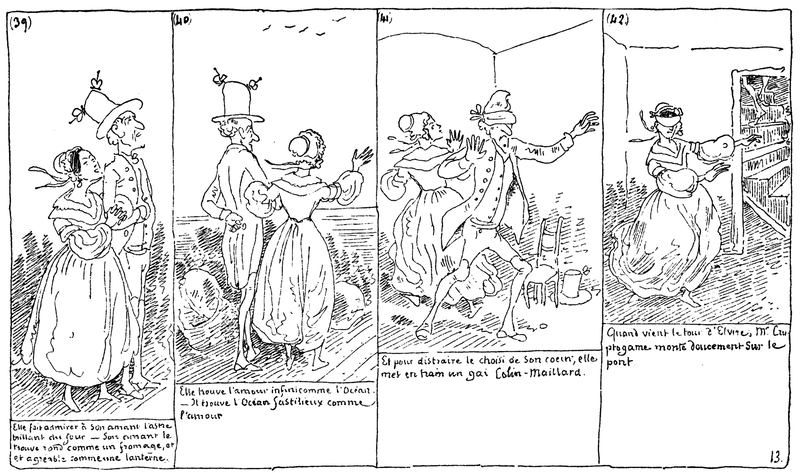 (39)
Elle fait admirer à son amant l'astre
brillant du jour — Son amant le
trouve rond comme un fromage, et
et agréable comme une lanterne.
(40)
Elle trouve l'amour infini comme l'Océan.
— Il trouve l'Océan fastidieux comme
l'amour
(41)
Et pour distraire le choisi de son coeur, elle
met en train un gai Colin-Maillard.
(42)
Quand vient le tour d'Elvire, Mr Cry
ptogame monte doucement sur le
pont
13.